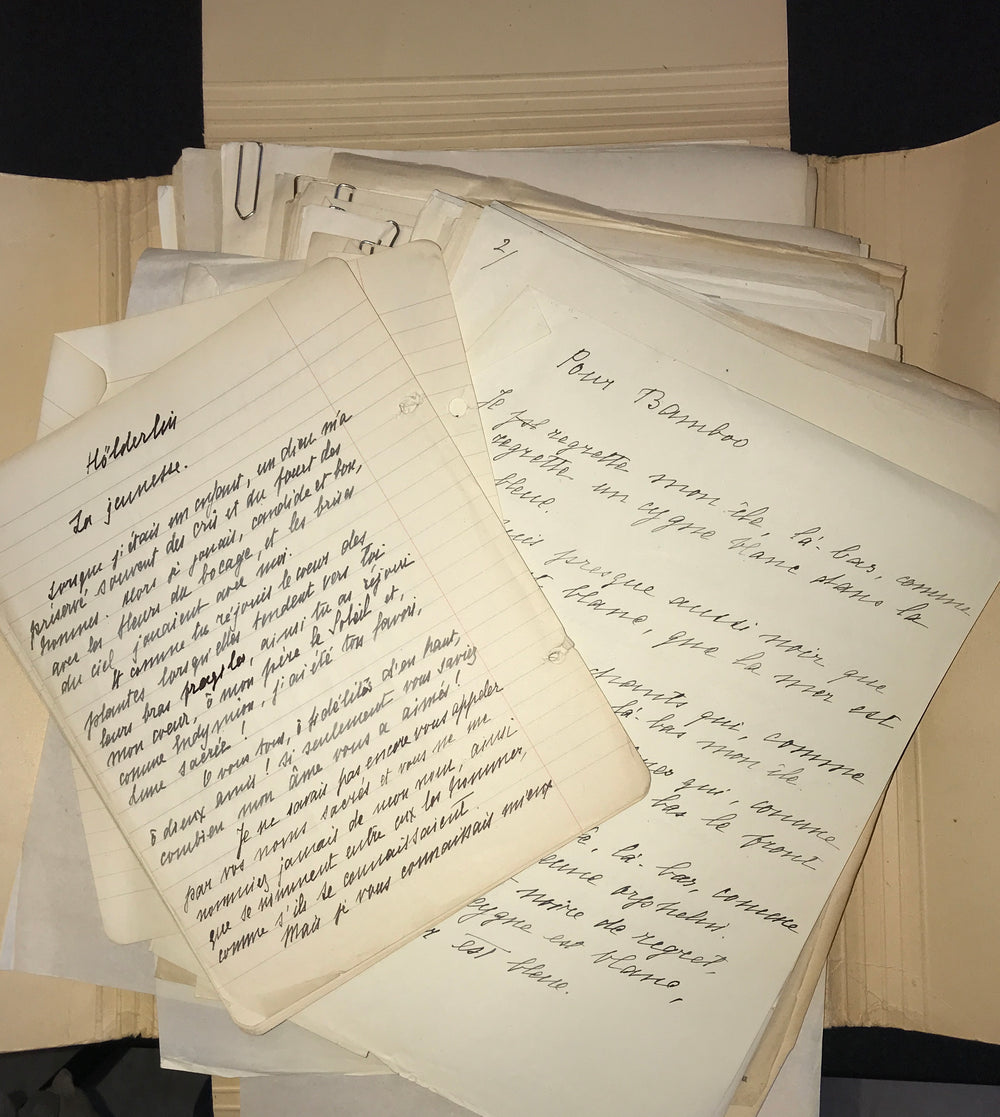 Hölderlin
La jeunesse.
Lorsque j'étais un enfant, un dieu m'a
préservé souvent des cris et du fouet des
hommes. Alors je jouais, candide et bon,
avec les fleurs du bocage, et les brises
du ciel jouaient avec moi.
Et comme tu réjouis le cœur des
plantes lorsqu'elles tendent vers toi
leurs bras fragiles, ainsi tu as réjoui
mon cœur, ô mon père le Soleil et,
comme Endymion, j'ai été ton favori,
Lune sacrée !
O vous tous, ô fidélités d'en haut,
ô dieux amis ! Si seulement vous saviez
combien mon âme vous a aimés !
Je ne savais pas encore vous appeler
par vos noms sacrés et vous ne me
nommiez jamais de mon nom, ainsi
que se nomment entre eux les hommes,
comme s'ils se connaissaient.
Mais je vous connaissais mieux
2/
Pour Bamboo
Je regrette mon île, là-bas, comme
regrette un cygne blanc dans la
bleue.
presque aussi noir que
blanc, que la mer est
chants qui, comme
là-bas mon île.
qui, comme
bas le front
là-bas, comme
orphelin.
noire de regret,
cygne est blanc,
est bleue.